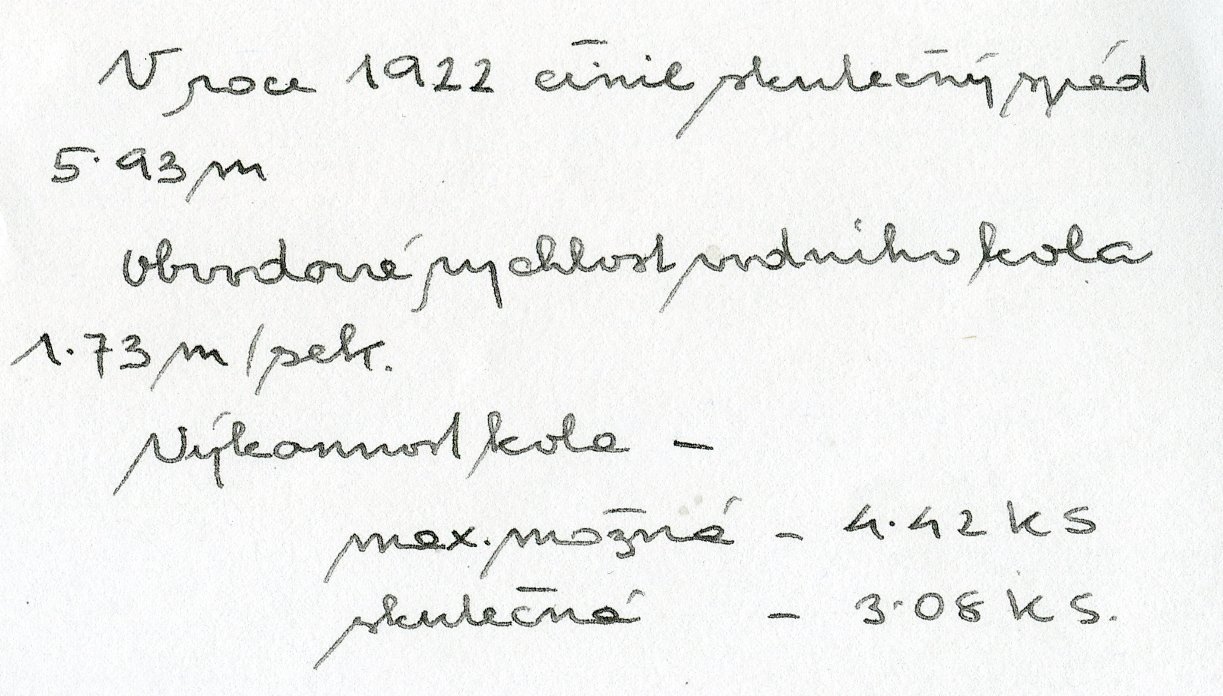 V roce 1922 činil skutečný spád
5.93 m
obvodová rychlost vodního kola
1.73 m/sek.
Výkonnost kola –
max. možná – 4.42 KS
skutečná – 3.08 KS.